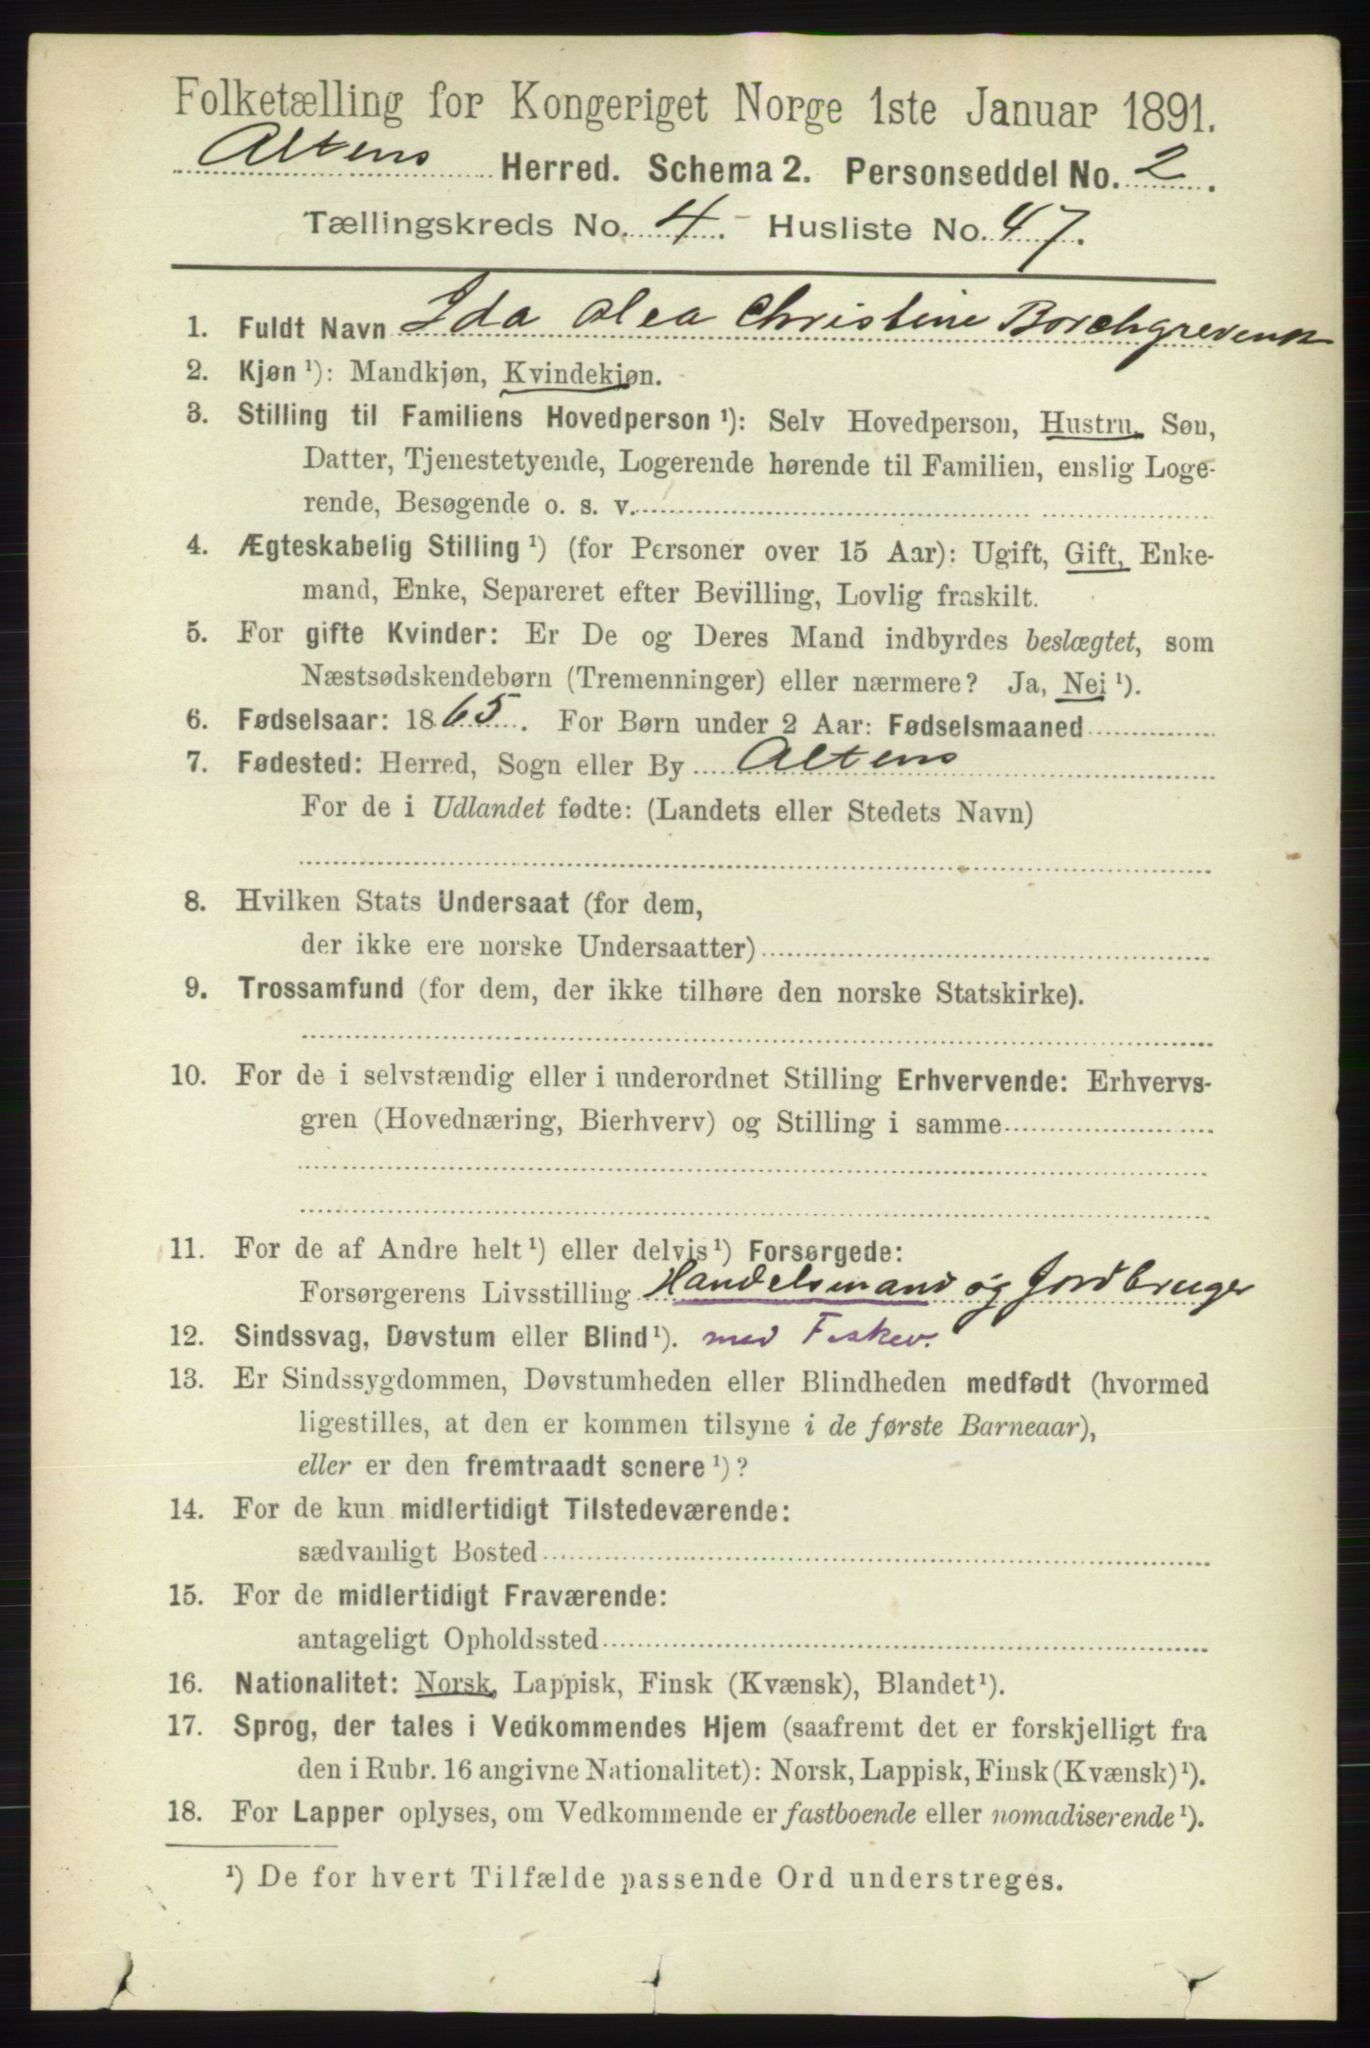 Folketælling for Kongeriget Norge 1ste Januar 1891.
Altens Herred. Schema 2. Personseddel No. 2.
Tællingskreds No. 4. - Husliste No. 47.
1. Fuldt Navn Ida Olea Christine Borchgrevenk
2. Kjøn ¹): Mandkjøn, Kvindekjøn.
3. Stilling til Familiens Hovedperson ¹): Selv Hovedperson, Hustru, Søn,
Datter, Tjenestetyende, Logerende hørende til Familien, enslig Loge-
rende, Besøgende o. s. v.
4. Ægteskabelig Stilling ¹) (for Personer over 15 Aar): Ugift, Gift, Enke-
mand, Enke, Separeret efter Bevilling, Lovlig fraskilt.
5. For gifte Kvinder: Er De og Deres Mand indbyrdes beslægtet, som
Næstsødskendebørn (Tremenninger) eller nærmere? Ja, Nei ¹).
6. Fødselsaar: 1865. For Børn under 2 Aar: Fødselsmaaned
7. Fødested: Herred, Sogn eller By Altens
For de i Udlandet fødte: (Landets eller Stedets Navn)
8. Hvilken Stats Undersaat (for dem,
der ikke ere norske Undersaatter)
9. Trossamfund (for dem, der ikke tilhøre den norske Statskirke).
10. For de i selvstændig eller i underordnet Stilling Erhvervende: Erhvervs-
gren (Hovednæring, Bierhverv) og Stilling i samme
11. For de af Andre helt ¹) eller delvis ¹) Forsørgede:
Forsørgerens Livsstilling Handelsmand og Jordbruger
12. Sindssvag, Døvstum eller Blind ¹). med Fiskev.
13. Er Sindssygdommen, Døvstumheden eller Blindheden medfødt (hvormed
ligestilles, at den er kommen tilsyne i de første Barneaar),
eller er den fremtraadt senere ¹)?
14. For de kun midlertidigt Tilstedeværende:
sædvanligt Bosted
15. For de midlertidigt Fraværende:
antageligt Opholdssted
16. Nationalitet: Norsk, Lappisk, Finsk (Kvænsk), Blandet ¹).
17. Sprog, der tales i Vedkommendes Hjem (saafremt det er forskjelligt fra
den i Rubr. 16 angivne Nationalitet): Norsk, Lappisk, Finsk (Kvænsk) ¹).
18. For Lapper oplyses, om Vedkommende er fastboende eller nomadiserende ¹).
¹) De for hvert Tilfælde passende Ord understreges.